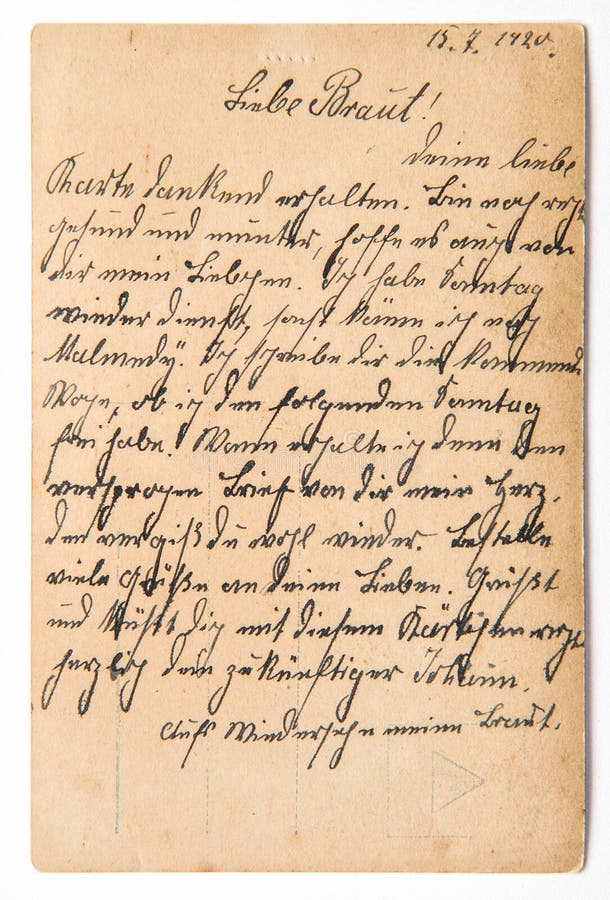 15.7.1920.
Liebe Braut!
Deine liebe
Karte dankend erhalten. Bin noch recht
gesund und munter, hoffe es auch von
dir mein Liebchen. Ich habe Sonntag
wieder dienst, sonst käme ich nach
Malmedy. Ich schreibe dir die kommende
Woche, ob ich den folgenden Sonntag
frei habe. Wann erhalte ich denn den
versprochen Brief von dir mein Herz.
den vergiß du wohl wieder. Bestelle
viele Grüße an deine Lieben. Grüßt
und küsst dich mit diesem Kärtchen recht
herzlich dein zukünftiger Johann.
Aufs Wiedersehn meine Braut.